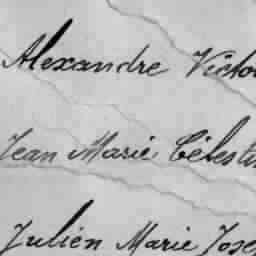 Alexandre Victo
Jean Marie Célesti
Julien Marie Jose